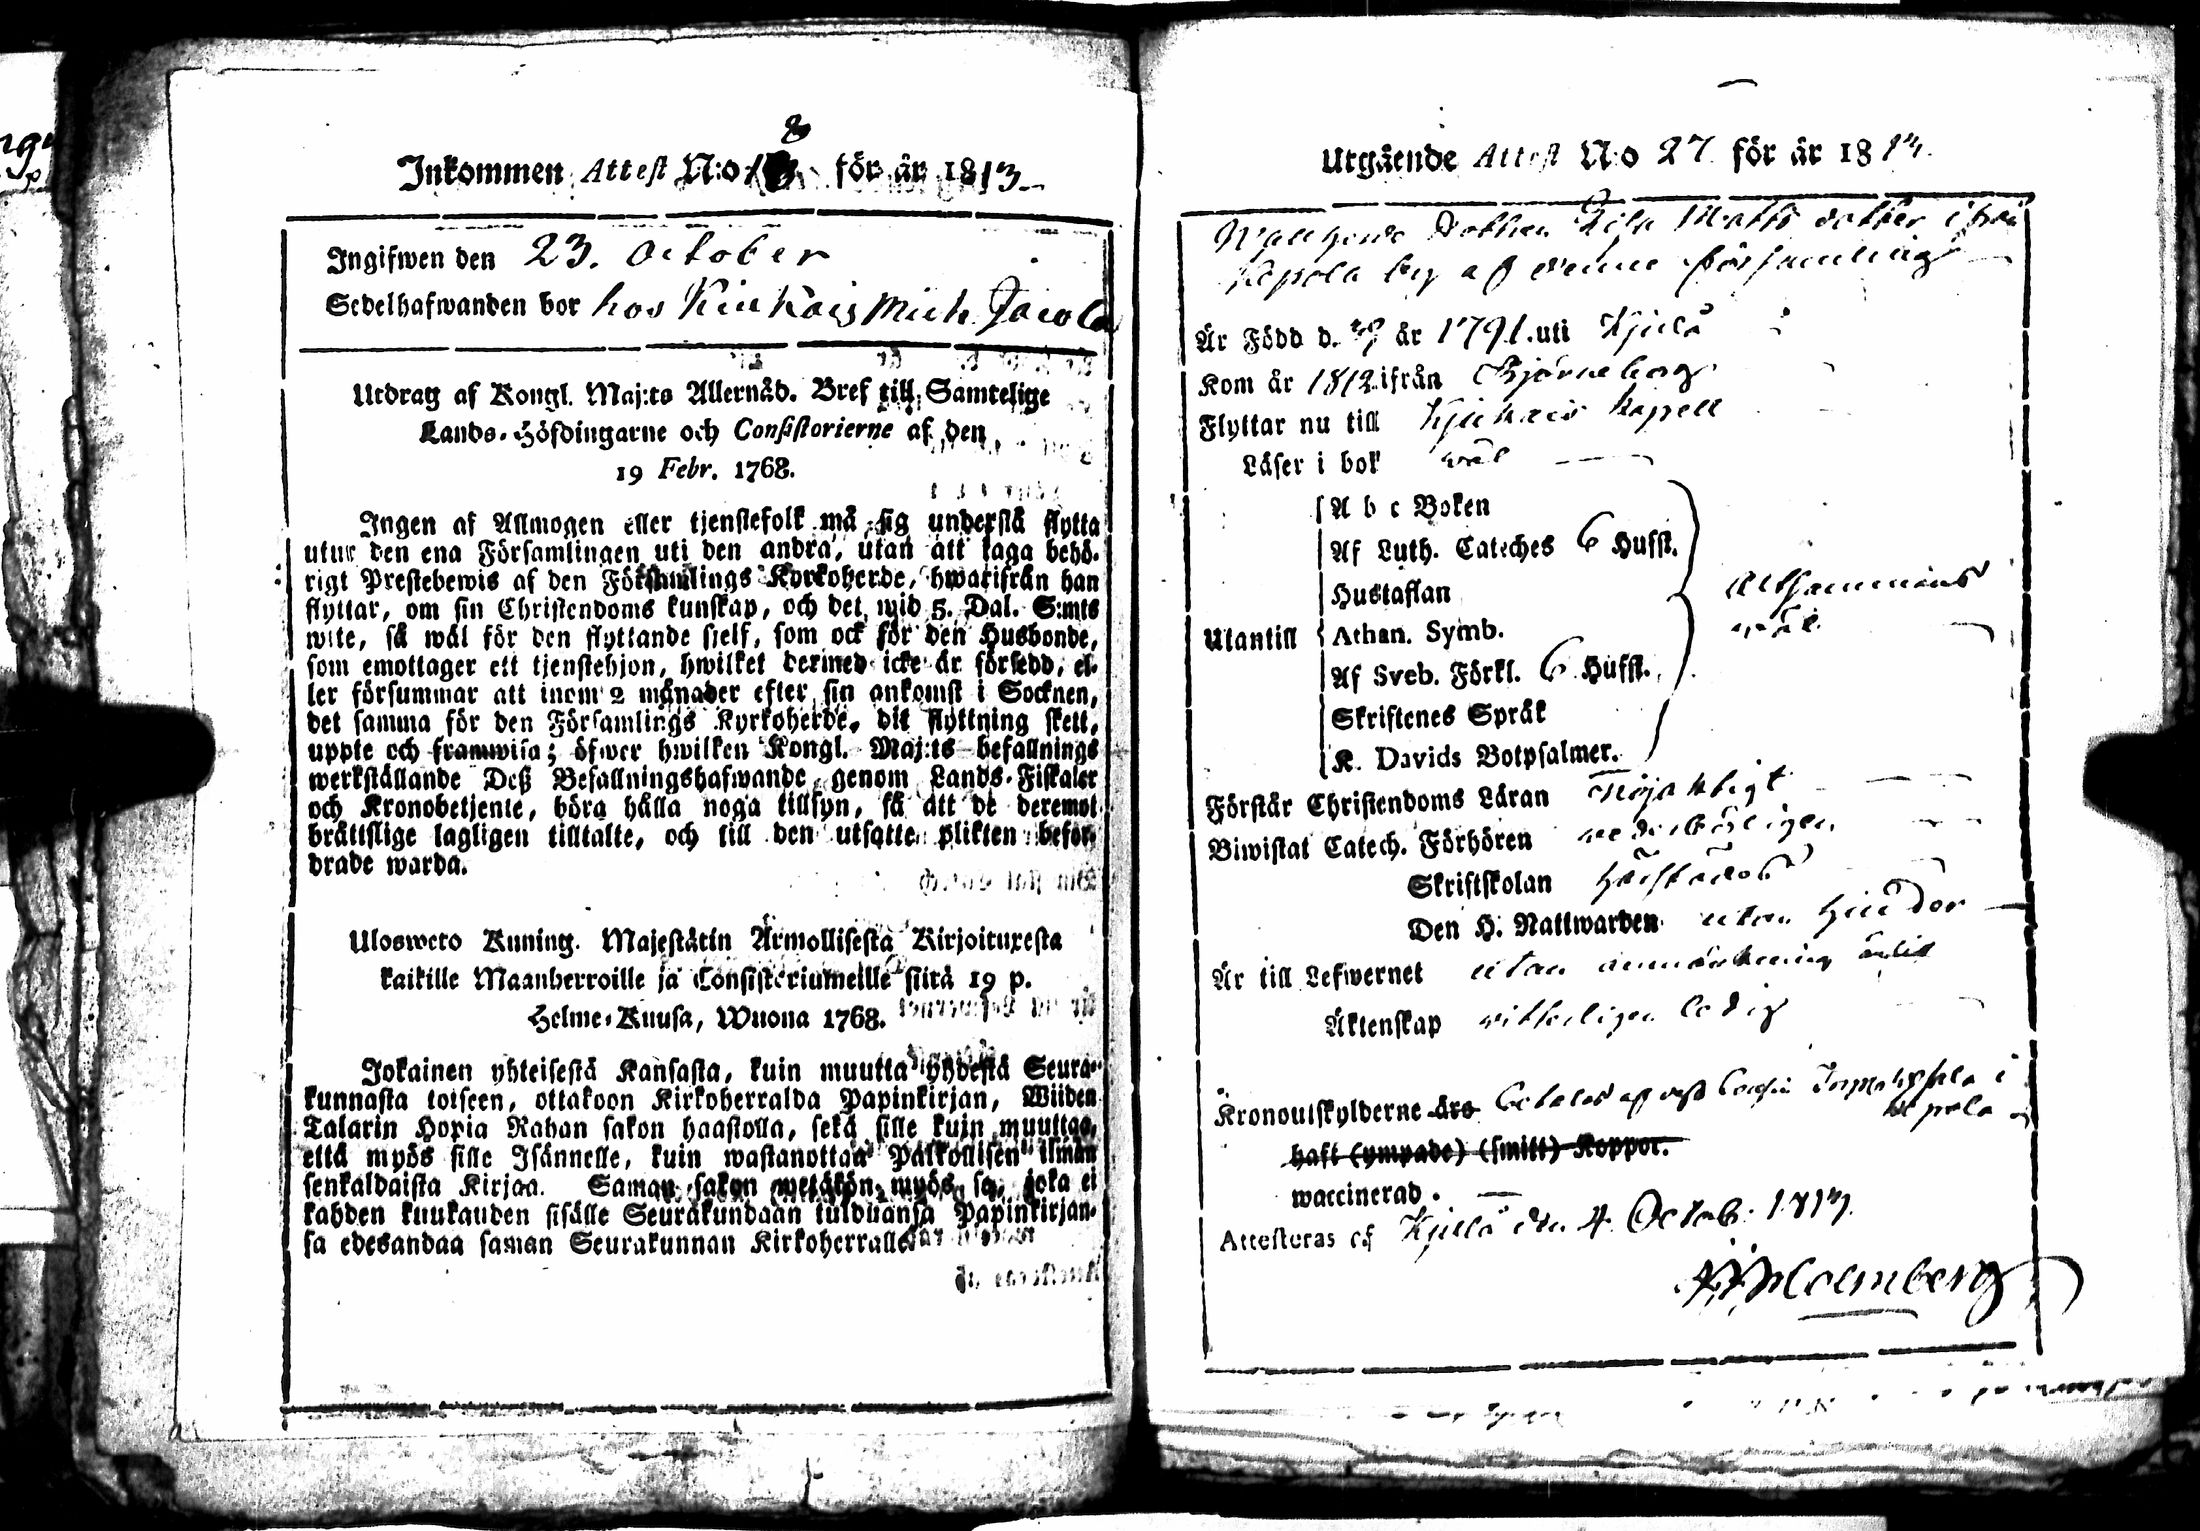 Inkommen Attest N:o för år 1813.
Ingifwen den 23. October
Sedelhafwanden bor hos Kiukais Mich. Jacola
Utdrag af Kongl. Maj:ts Allernåd. Bref till Samtelige
Lands-Höfdingarne och Consistorierne af den
19 Febr. 1768.
Ingen af Allmogen eller tjenstefolk må sig understå flytta
utur den ena Församlingen uti den andra, utan att taga behö-
rigt Prestebewis af den Församlings Kyrkoherde, hwarifrån han
flyttar, om sin Christendoms kunskap, och det wid 5. Dal. S:mts
wite, så wäl för den flyttande sjelf, som ock för den Husbonde,
som emottager ett tjenstehjon, hwilket dermed icke är försedd, el-
ler försummar att inom 2 månader efter sin ankomst i Socknen,
det samma för den Församlings Kyrkoherde, dit flyttning skett,
uppte och framwisa; öfwer hwilken Kongl. Maj:ts befallnings
werkställande Deß Befallningshafwande genom Lands-Fiskaler
och Kronobetjente, böra hålla noga tillsyn, så att de deremot
bråttslige lagligen tilltalte, och till den utsatte plikten befor-
drade warda.
Ulosweto Kuning. Majestätin Armollisesta Kirjoituxesta
kaikille Maanherroille ja Consistoriumeille siitä 19 p.
Helme-Kuusa, Wuona 1768.
Jokainen yhteisestä Kansasta, kuin muutta yhdestä Seura-
kunnasta toiseen, ottakoon Kirkoherralda Papinkirjan, Wiiden
Talarin Hopia Rahan sakon haastolla, sekä sille kuin muuttaa,
että myös sille Isännelle, kuin wastanottaa Palkollisen ilman
senkaldaista Kirjaa. Saman sakon wetäkön myös se, joka ei
kahden kuukauden sisälle Seurakundaan tulduansa Papinkirjan-
sa edesandaa saman Seurakunnan Kirkoherralle
Utgående Attest N:o 27 för år 1813.
dotter i från
by af denne församling
Är Född d. år 1791. uti Kjulo
Kom år 1812 ifrån Björneborg
Flyttar nu till Kjukais Kapell
Läser i bok wäl
A b c Boken
Af Luth. Cateches 6 Hufst.
Hustaflan
Utantill Athan. Symb.
Af Sveb. Förkl. 6 Hufst.
Skriftenes Språk
K. Davids Botpsalmer.
Altsammans
wäl
Förstår Christendoms Läran Nöjaktigt
Biwistat Catech. Förhören wederbörligen
Skriftskolan
Den H. Nattwarden utan hinder
Är till Lefwernet utan anmärkning
Äktenskap witterligen ledig
Kronoutskylderne års
haft (ympade) (smitt) Koppor.
waccinerad.
Attesteras af Kjulo den 4 Octob. 1813.